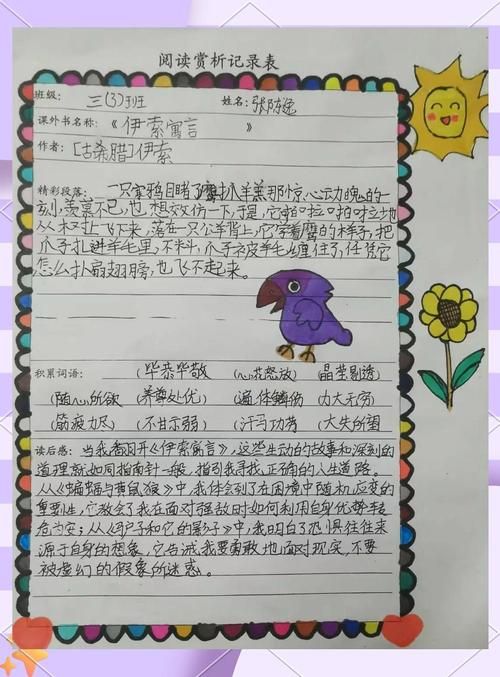 阅读赏析记录表
班级：三(3)班 姓名：张陈逸
课外书名称：《伊索寓言》
作者：[古希腊]伊索
精彩段落：一只寒鸦目睹了鹰抓羊羔那惊心动魄的一
刻，羡慕不已，也想效仿一下，于是，它啪啦啪啦地
从树上飞下来，落在一只公羊背上，它学着鹰的样子，把
爪子扎进羊毛里，不料，爪子被羊毛缠住了，任凭它
怎么扑扇翅膀，也飞不起来。
积累词语：（毕恭毕敬 （心花怒放） （晶莹剔透
（随心所欲 （养尊处优） （遍体鳞伤 （力大无穷
（筋疲力尽 （不甘示弱 （汗马功劳 （大失所望
读后感：当我翻开《伊索寓言》，这些生动的故事和深刻的
道理就如同指南针一般，指引我寻找正确的人生道路。
从《蝙蝠与黄鼠狼》中，我体会到了在困境中随机应变的
重要性，它教会了我在面对强敌时如何利用自身优势转
危为安；从《驴子和它的影子》中，我明白了恐惧往往来
源于自身的想象，它告诫我要勇敢地面对现实，不要
被虚幻的假象所迷惑。